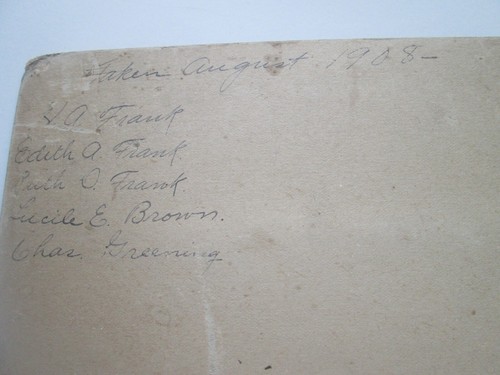 Taken August 1908-
A. Frank
Edith A. Frank
Ruth D. Frank.
Lucile E. Brown.
Chas. Greening